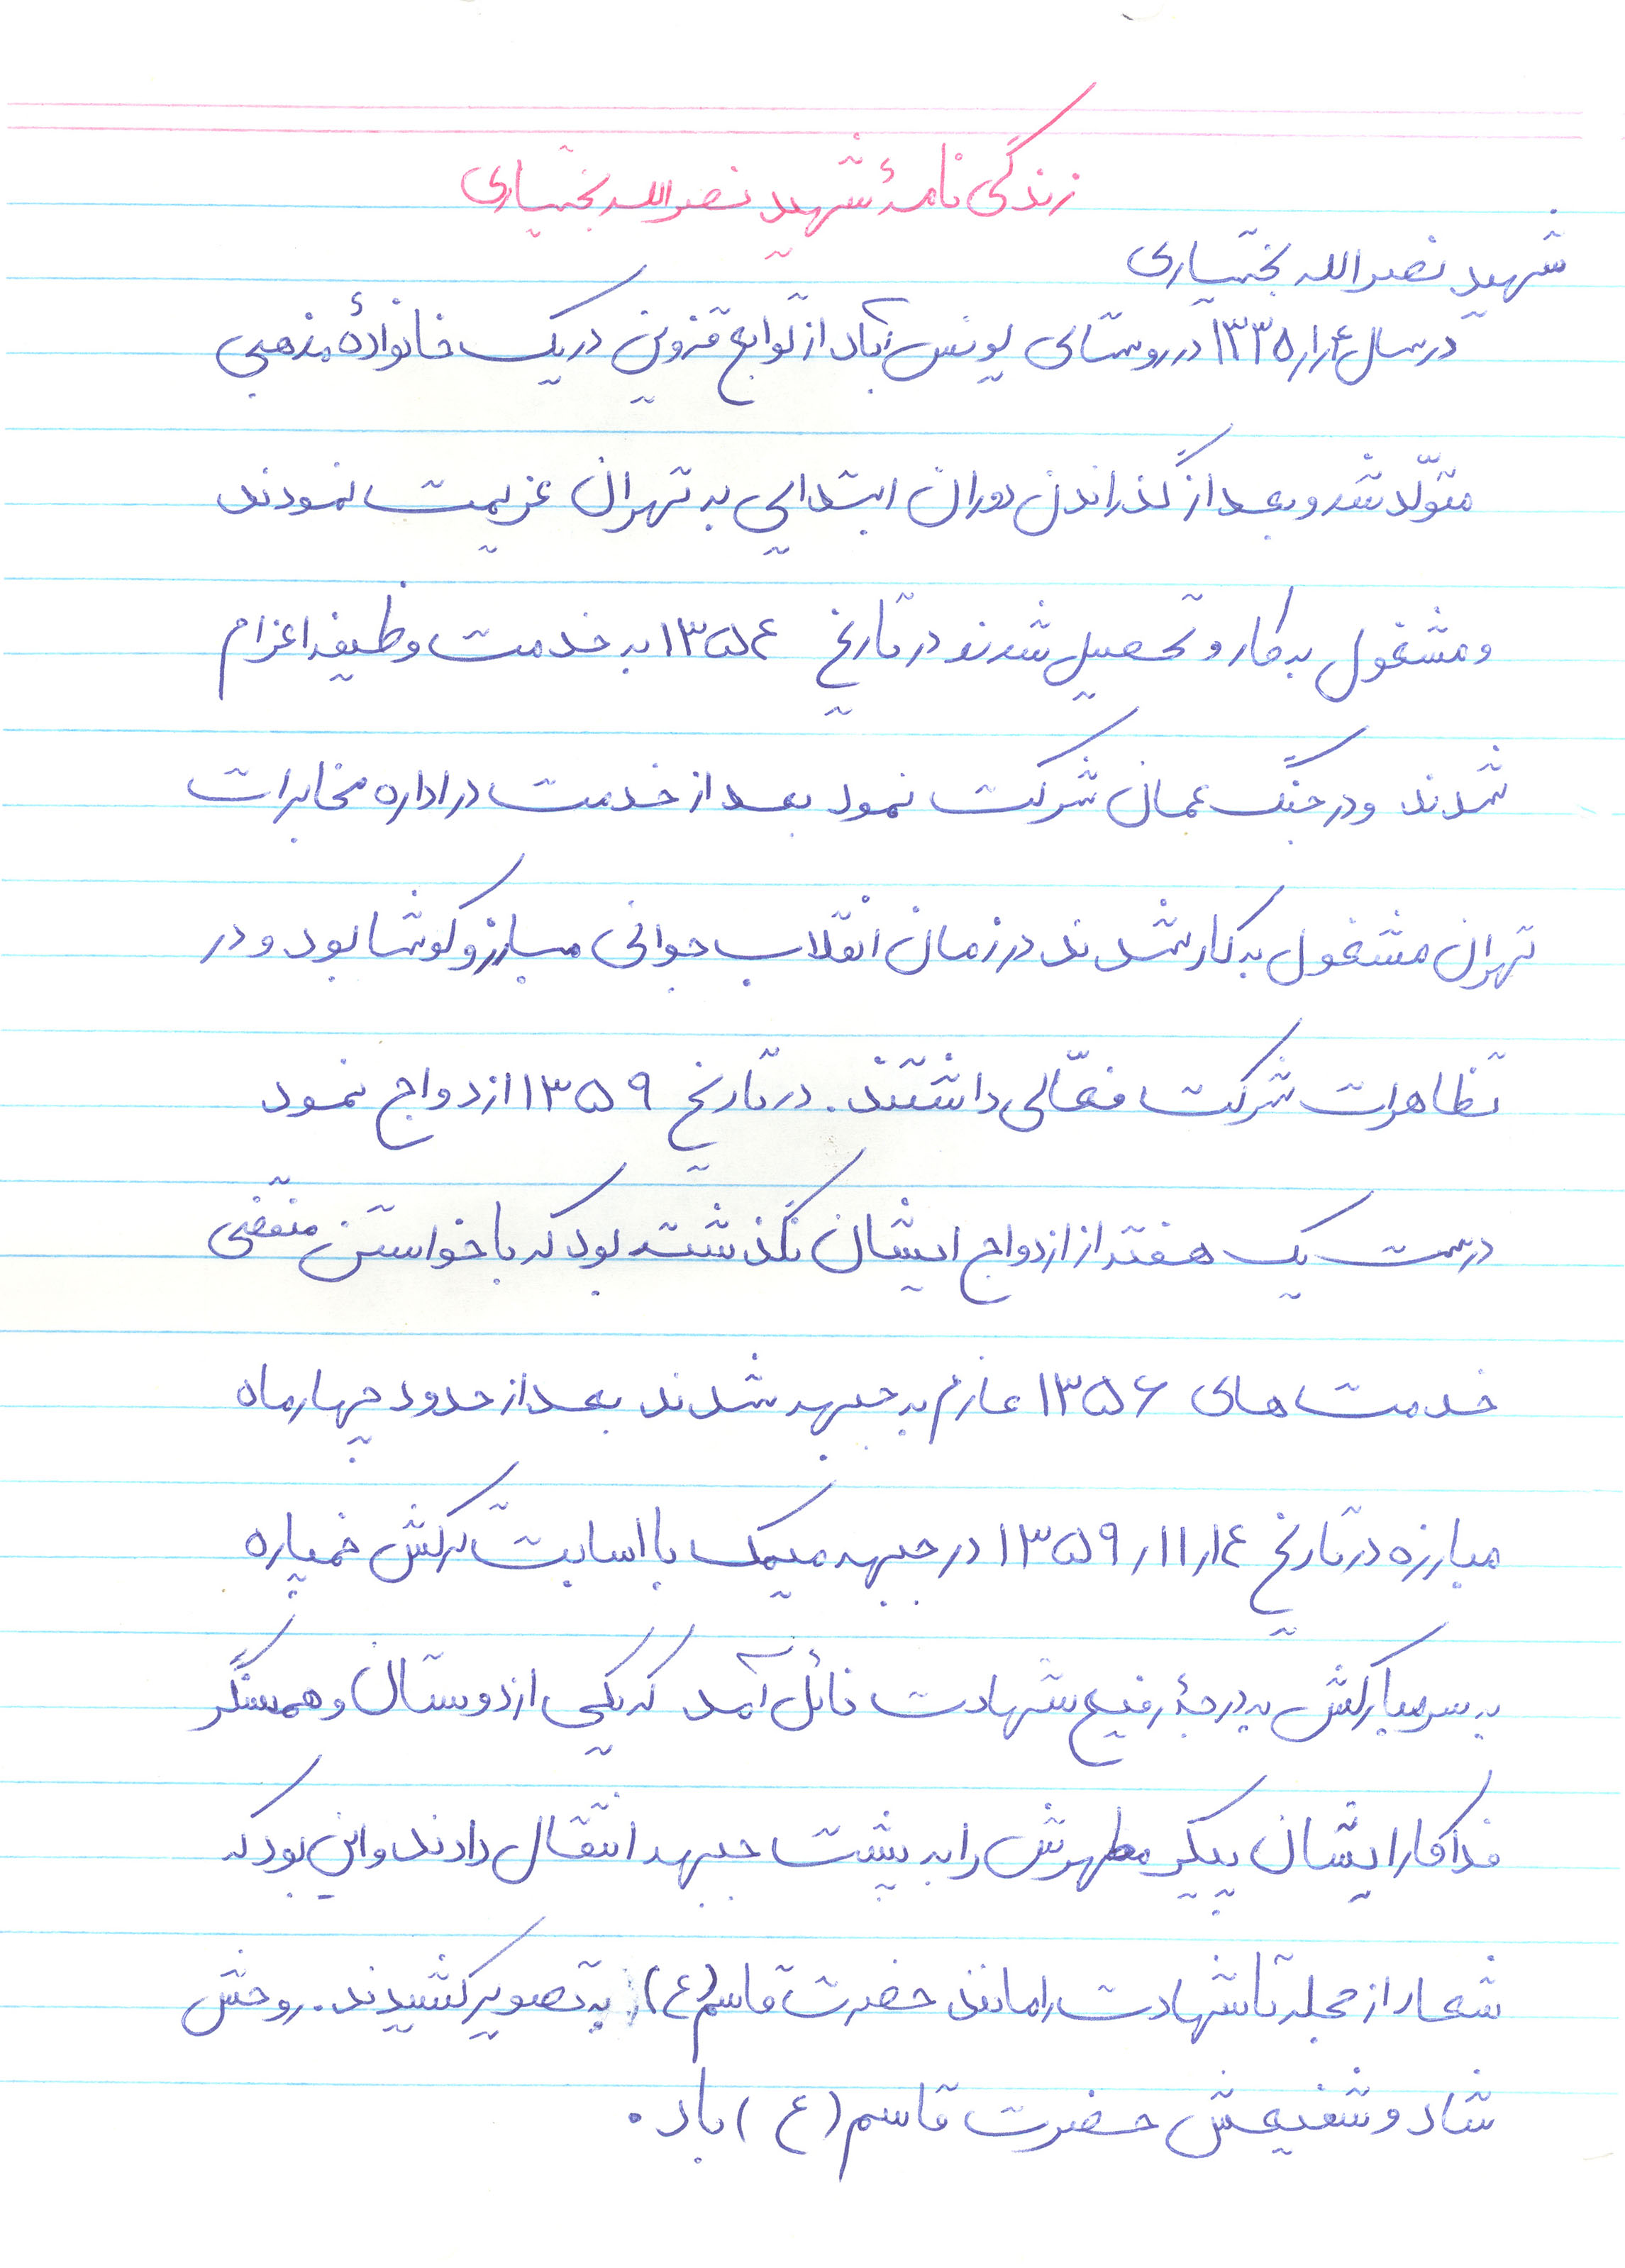 زندگی نامهٔ شهید نصرالله بختیاری
شهید نصرالله بختیاری
در سال ۱۳۳۵/۱/۴ در روستای یونس آباد از توابع قزوین در یک خانوادهٔ مذهبی
متولّد شد و بعد از گذراندن دوران ابتدایی به تهران عزیمت نمودند
و مشغول به کار و تحصیل شدند در تاریخ ۱۳۵۴ به خدمت وظیفه اعزام
شدند و در جنگ عمان شرکت نمود بعد از خدمت در اداره مخابرات
تهران مشغول به کار شدند در زمان انقلاب جوانی مبارز و کوشا بود و در
تظاهرات شرکت فعّالی داشتند. در تاریخ ۱۳۵۹ ازدواج نمود
درست یک هفته از ازدواج ایشان نگذشته بود که با خواستن منقضی
خدمت های ۱۳۵۶ عازم به جبهه شدند بعد از حدود چهار ماه
مبارزه در تاریخ ۱۳۵۹/۱۱/۱۴ در جبهه میمک با اسابت ترکش خمپاره
به سر مبارکش به درجهٔ رفیع شهادت نائل آمد که یکی از دوستان و همسنگر
فداکار ایشان پیکر مطهرش را به پشت جبهه انتقال دادند و این بود که
شعار از حجله تا شهادت را مانند حضرت قاسم (ع) به تصویر کشیدند. روحش
شاد و شفیعش حضرت قاسم (ع) باد.